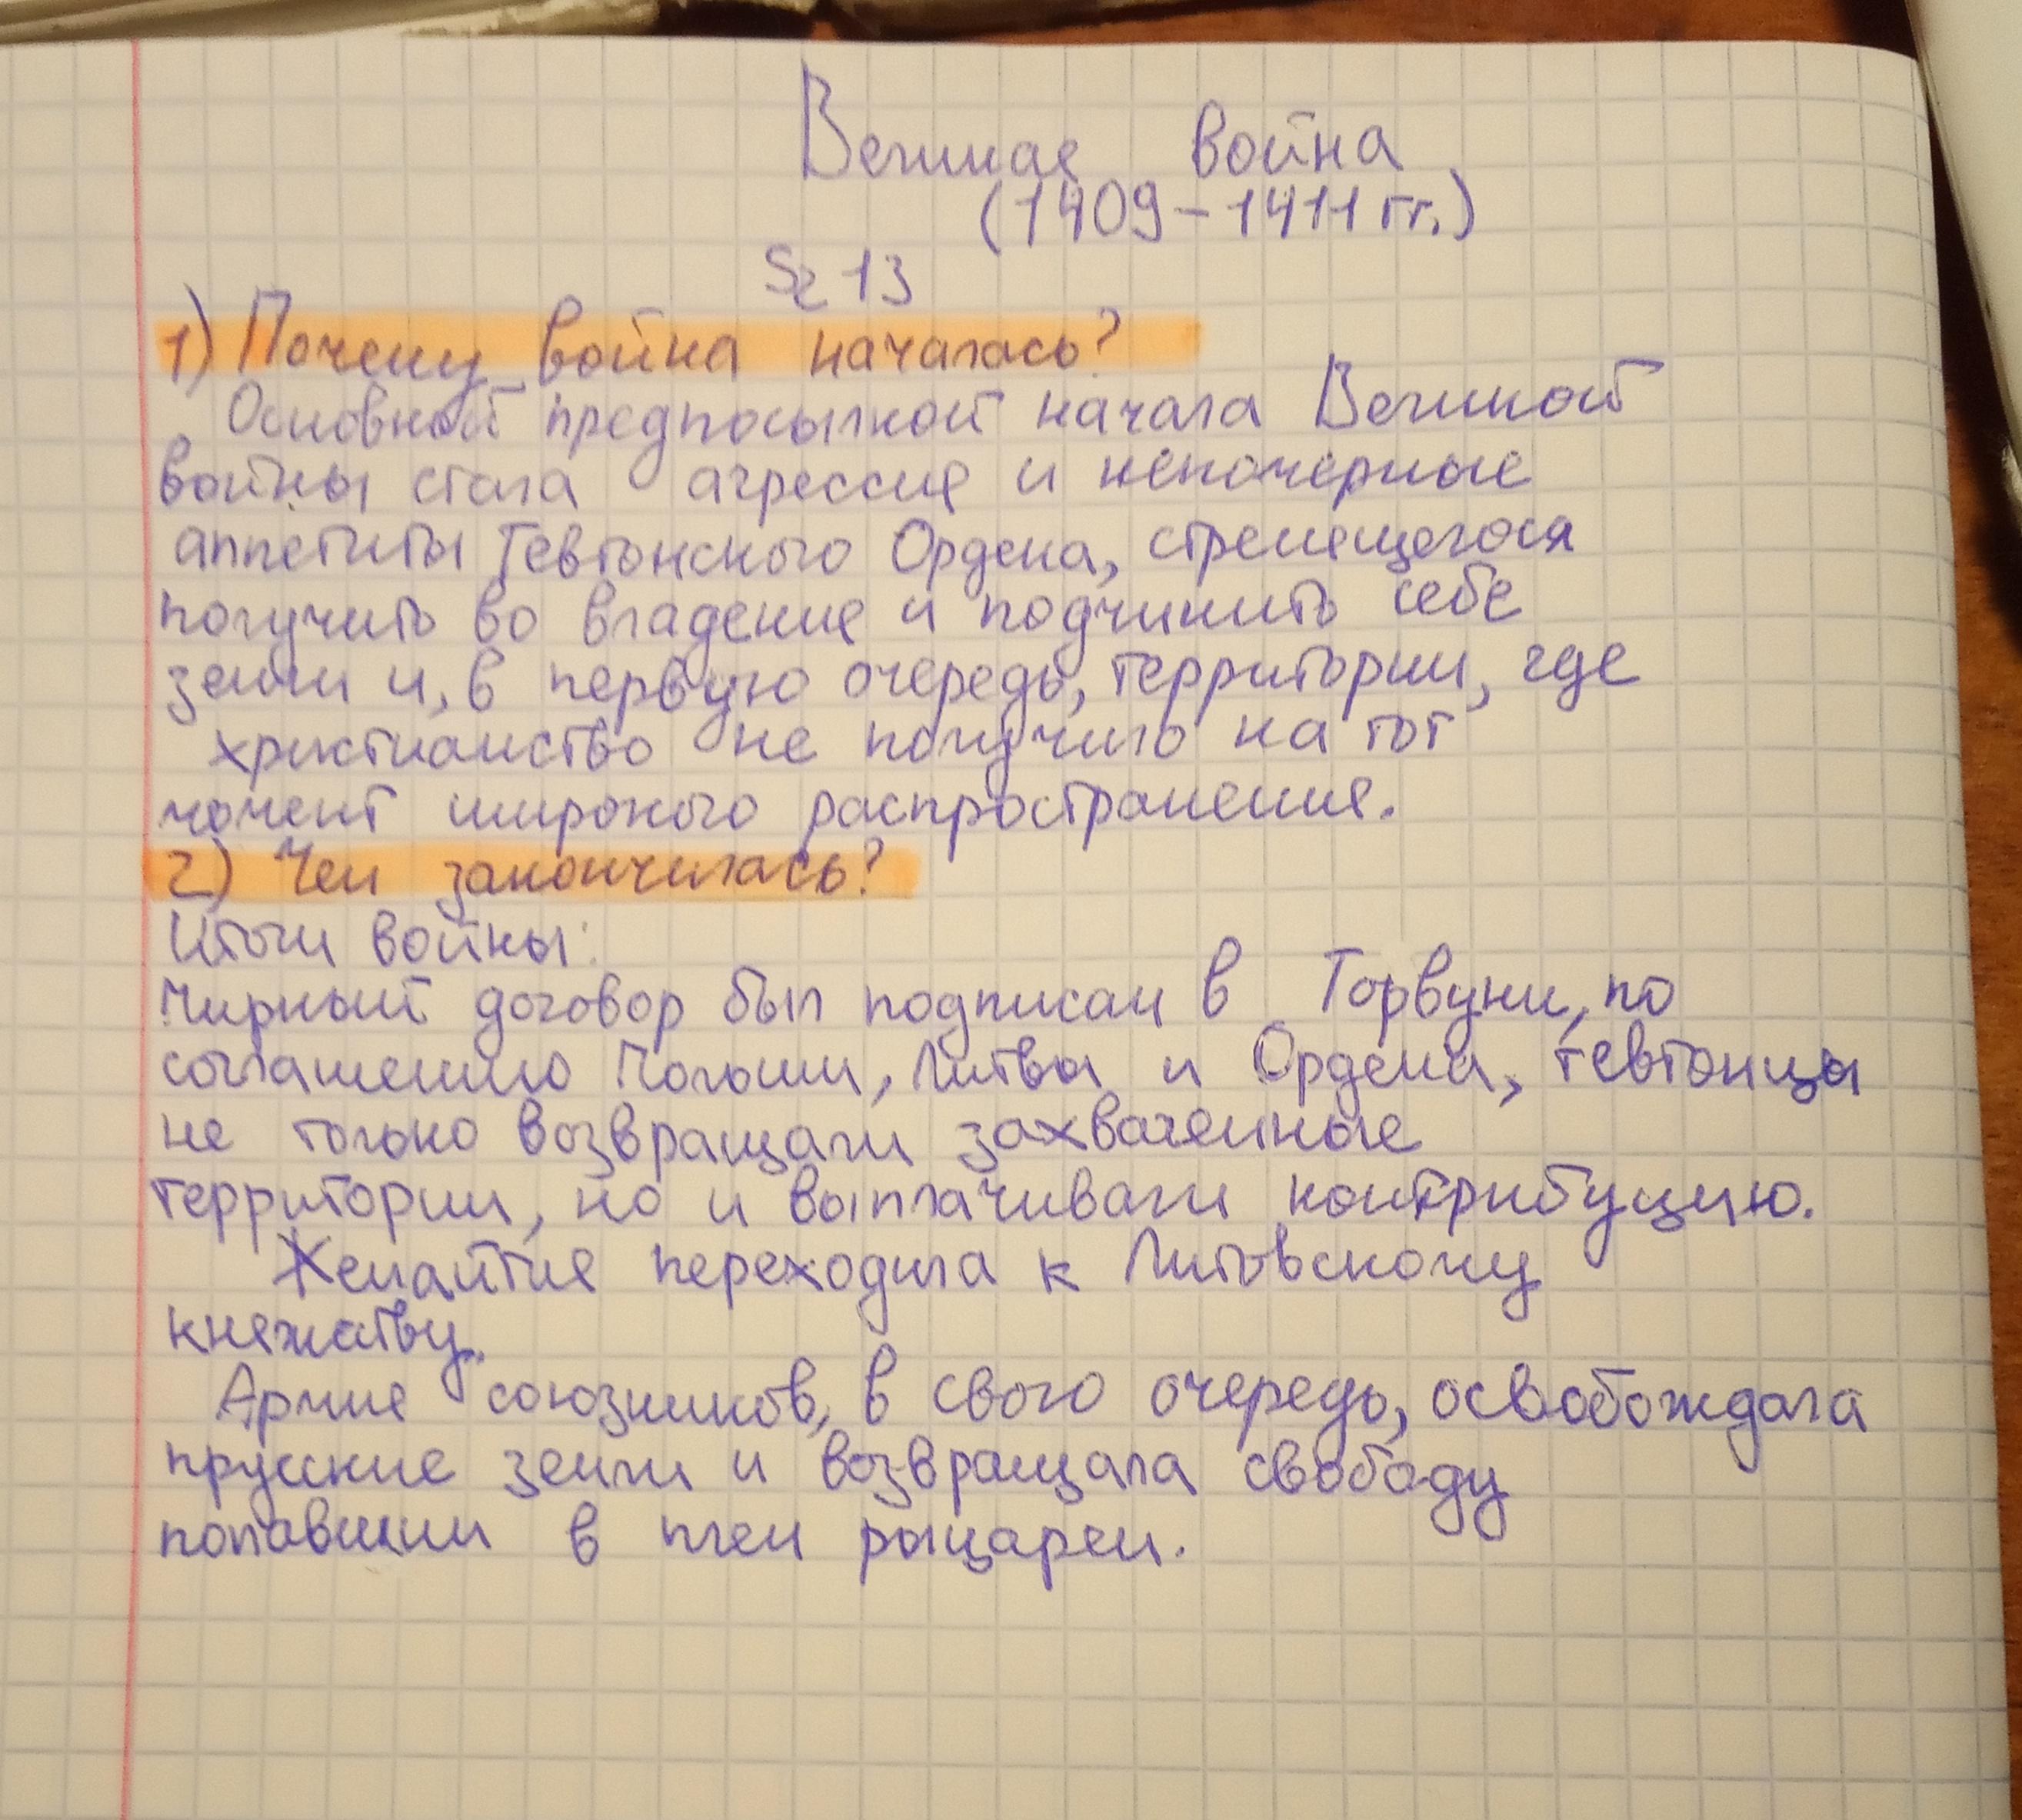 Великая война
(1409-1411 гг.)
§ 13
1) Почему война началась?
Основной предпосылкой начала Великой
войны стала агрессия и непомерные
аппетиты Тевтонского Ордена, стремещегося
получить во владение и подчинить себе
земли и, в первую очередь, территории, где
христианство не получило на тот
момент широкого распространения.
2) Чем закончилась?
Итоги войны:
Мирный договор был подписан в Торвуни, по
соглашению Польши, Литвы и Ордена, тевтонцы
не только возвращали захваченные
территории, но и выплачивали контрибуцию.
Жемайтия переходила к Литовскому
княжатву.
Армия союзников, в свою очередь, освобождала
прусские земли и возвращала свободу
попавшим в плен рыцарем.